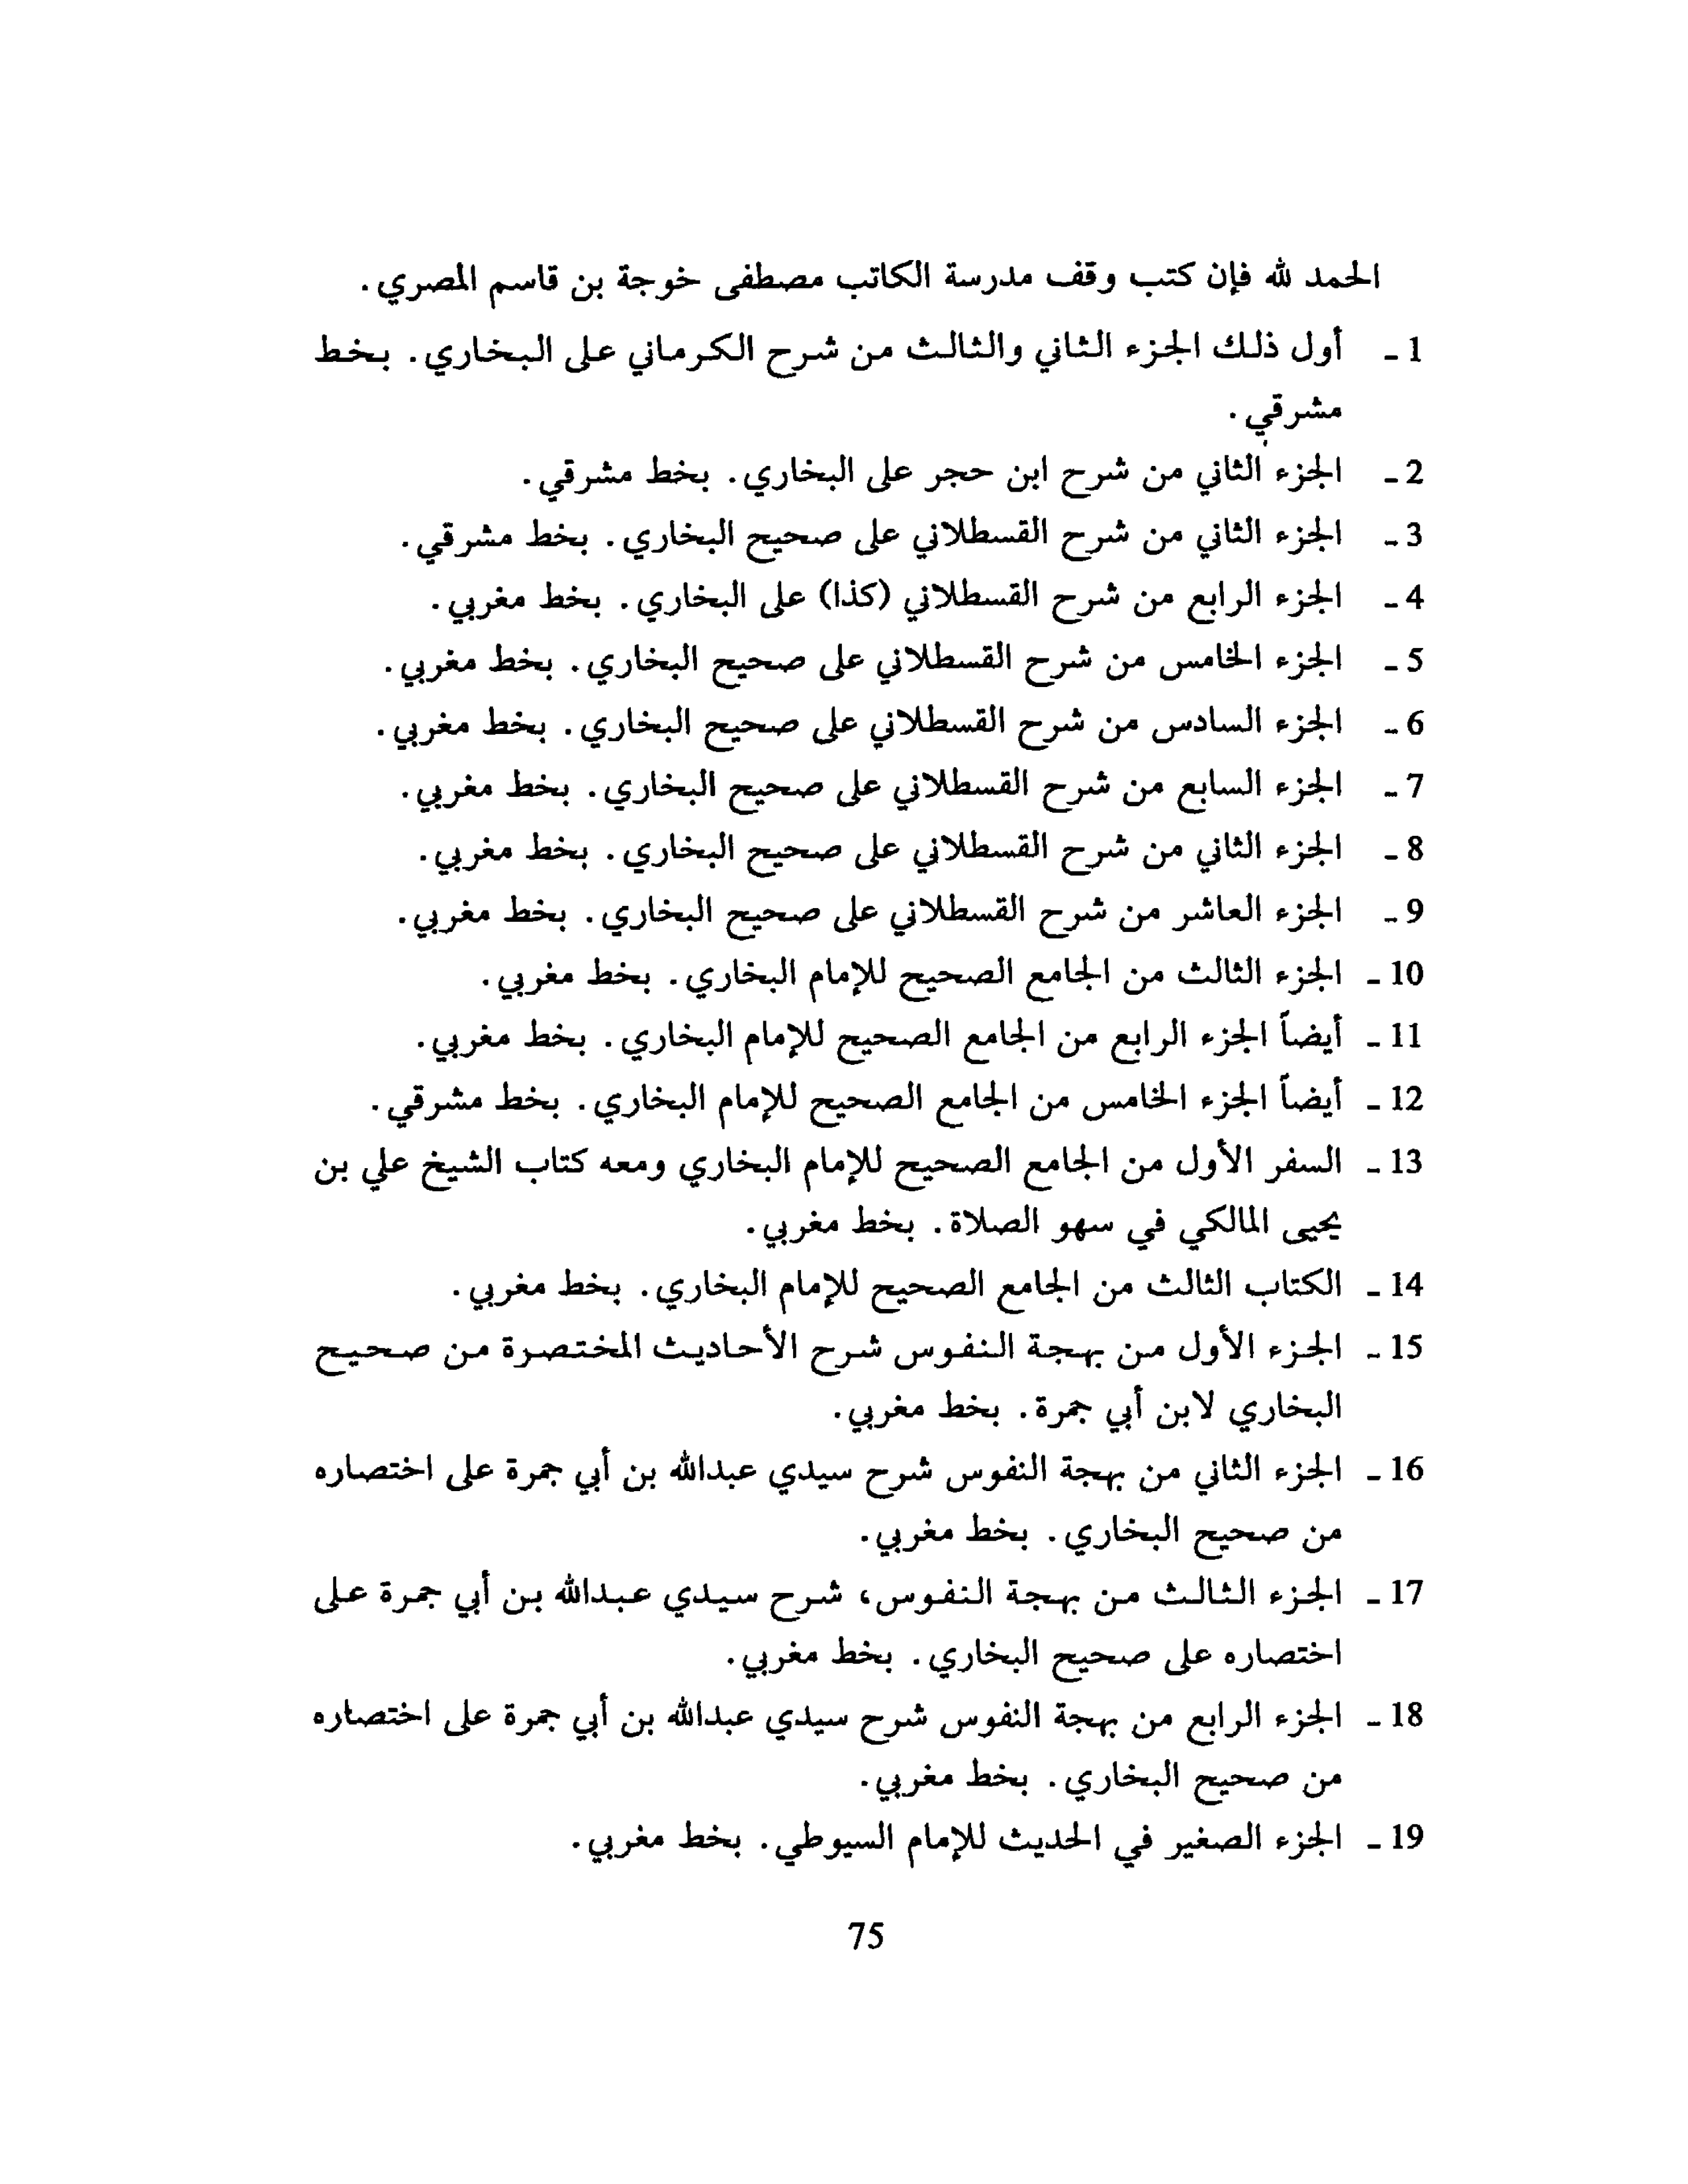 الحمد لله فإن كتب وقف مدرسة الكاتب مصطفى خوجة بن قاسم المصري.
1 ـ أول ذلك الجزء الثاني والثالث من شرح الكرماني على البخاري. بخط
مشرقي.
2 ـ الجزء الثاني من شرح ابن حجر على البخاري. بخط مشرقي.
3 ـ الجزء الثاني من شرح القسطلاني على صحيح البخاري. بخط مشرقي.
4 ـ الجزء الرابع من شرح القسطلاني (كذا) على البخاري. بخط مغربي.
5 ـ الجزء الخامس من شرح القسطلاني على صحيح البخاري. بخط مغربي.
6 ـ الجزء السادس من شرح القسطلاني على صحيح البخاري. بخط مغربي.
7 ـ الجزء السابع من شرح القسطلاني على صحيح البخاري. بخط مغربي.
8 ـ الجزء الثاني من شرح القسطلاني على صحيح البخاري. بخط مغربي.
9 ـ الجزء العاشر من شرح القسطلاني على صحيح البخاري. بخط مغربي.
10 ـ الجزء الثالث من الجامع الصحيح للإمام البخاري. بخط مغربي.
11 ـ أيضاً الجزء الرابع من الجامع الصحيح للإمام البخاري. بخط مغربي.
12 ـ أيضاً الجزء الخامس من الجامع الصحيح للإمام البخاري. بخط مشرقي.
13 ـ السفر الأول من الجامع الصحيح للإمام البخاري ومعه كتاب الشيخ علي بن
يحيى المالكي في سهو الصلاة. بخط مغربي.
14 ـ الكتاب الثالث من الجامع الصحيح للإمام البخاري. بخط مغربي.
15 ـ الجزء الأول من بهجة النفوس شرح الأحاديث المختصرة من صحيح
البخاري لابن أبي جمرة. بخط مغربي.
16 ـ الجزء الثاني من بهجة النفوس شرح سيدي عبدالله بن أبي جمرة على اختصاره
من صحيح البخاري. بخط مغربي.
17 ـ الجزء الثالث من بهجة النفوس، شرح سيدي عبدالله بن أبي جمرة على
اختصاره على صحيح البخاري. بخط مغربي.
18 ـ الجزء الرابع من بهجة النفوس شرح سيدي عبدالله بن أبي جمرة على اختصاره
من صحيح البخاري. بخط مغربي.
19 ـ الجزء الصغير في الحديث للإمام السيوطي. بخط مغربي.
75